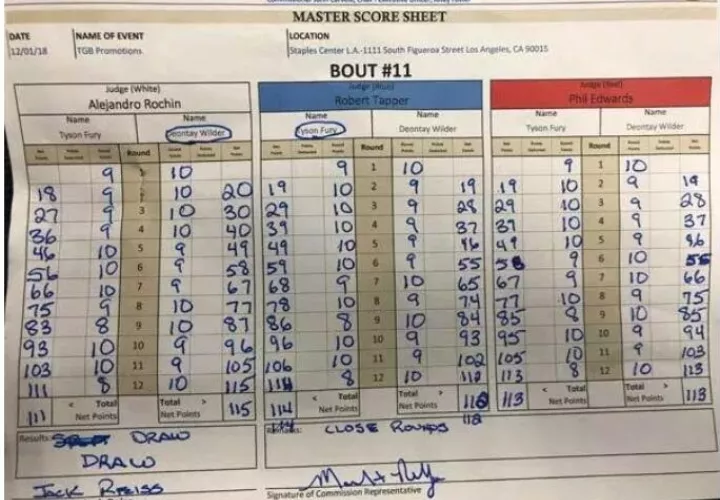 MASTER SCORE SHEET
DATE NAME OF EVENT LOCATION
12/01/18 TGB Promotions. Staples Center L.A.-1111 South Figueroa Street Los Angeles, CA 90015
BOUT #11
Judge (White) Judge (Blue) Judge (Red)
Alejandro Rochin Robert Tapper Phil Edwards
Name Name Name Name Name Name
Tyson Fury Deontay Wilder Tyson Fury Deontay Wilder Tyson Fury Deontay Wilder
Round Round Round
9 1 10 9 1 10 9 1 10
18 9 2 10 20 19 10 2 9 19 19 10 2 9 19
27 9 3 10 30 29 10 3 9 28 29 10 3 9 28
36 9 4 10 40 39 10 4 9 37 39 10 4 9 37
46 10 5 9 49 49 10 5 9 46 49 10 5 9 46
56 10 6 9 58 59 10 6 9 55 58 9 6 10 56
66 10 7 9 67 68 9 7 10 65 67 9 7 10 66
75 9 8 10 77 78 10 8 9 74 77 10 8 9 75
83 8 9 10 87 86 8 9 10 84 85 8 9 10 85
93 10 10 9 96 96 10 10 9 93 95 10 10 9 94
103 10 11 9 105 106 10 11 9 102 105 10 11 9 103
111 8 12 10 115 114 8 12 10 112 113 8 12 10 113
111 < Total Net Points Total > Net Points 115 114 < Total Net Points Total > Net Points 113 < Total Net Points Total > Net Points 113
114 112
Results: DRAW CLOSE ROUNDS
DRAW
JACK REISS
Signature of Commission Representative